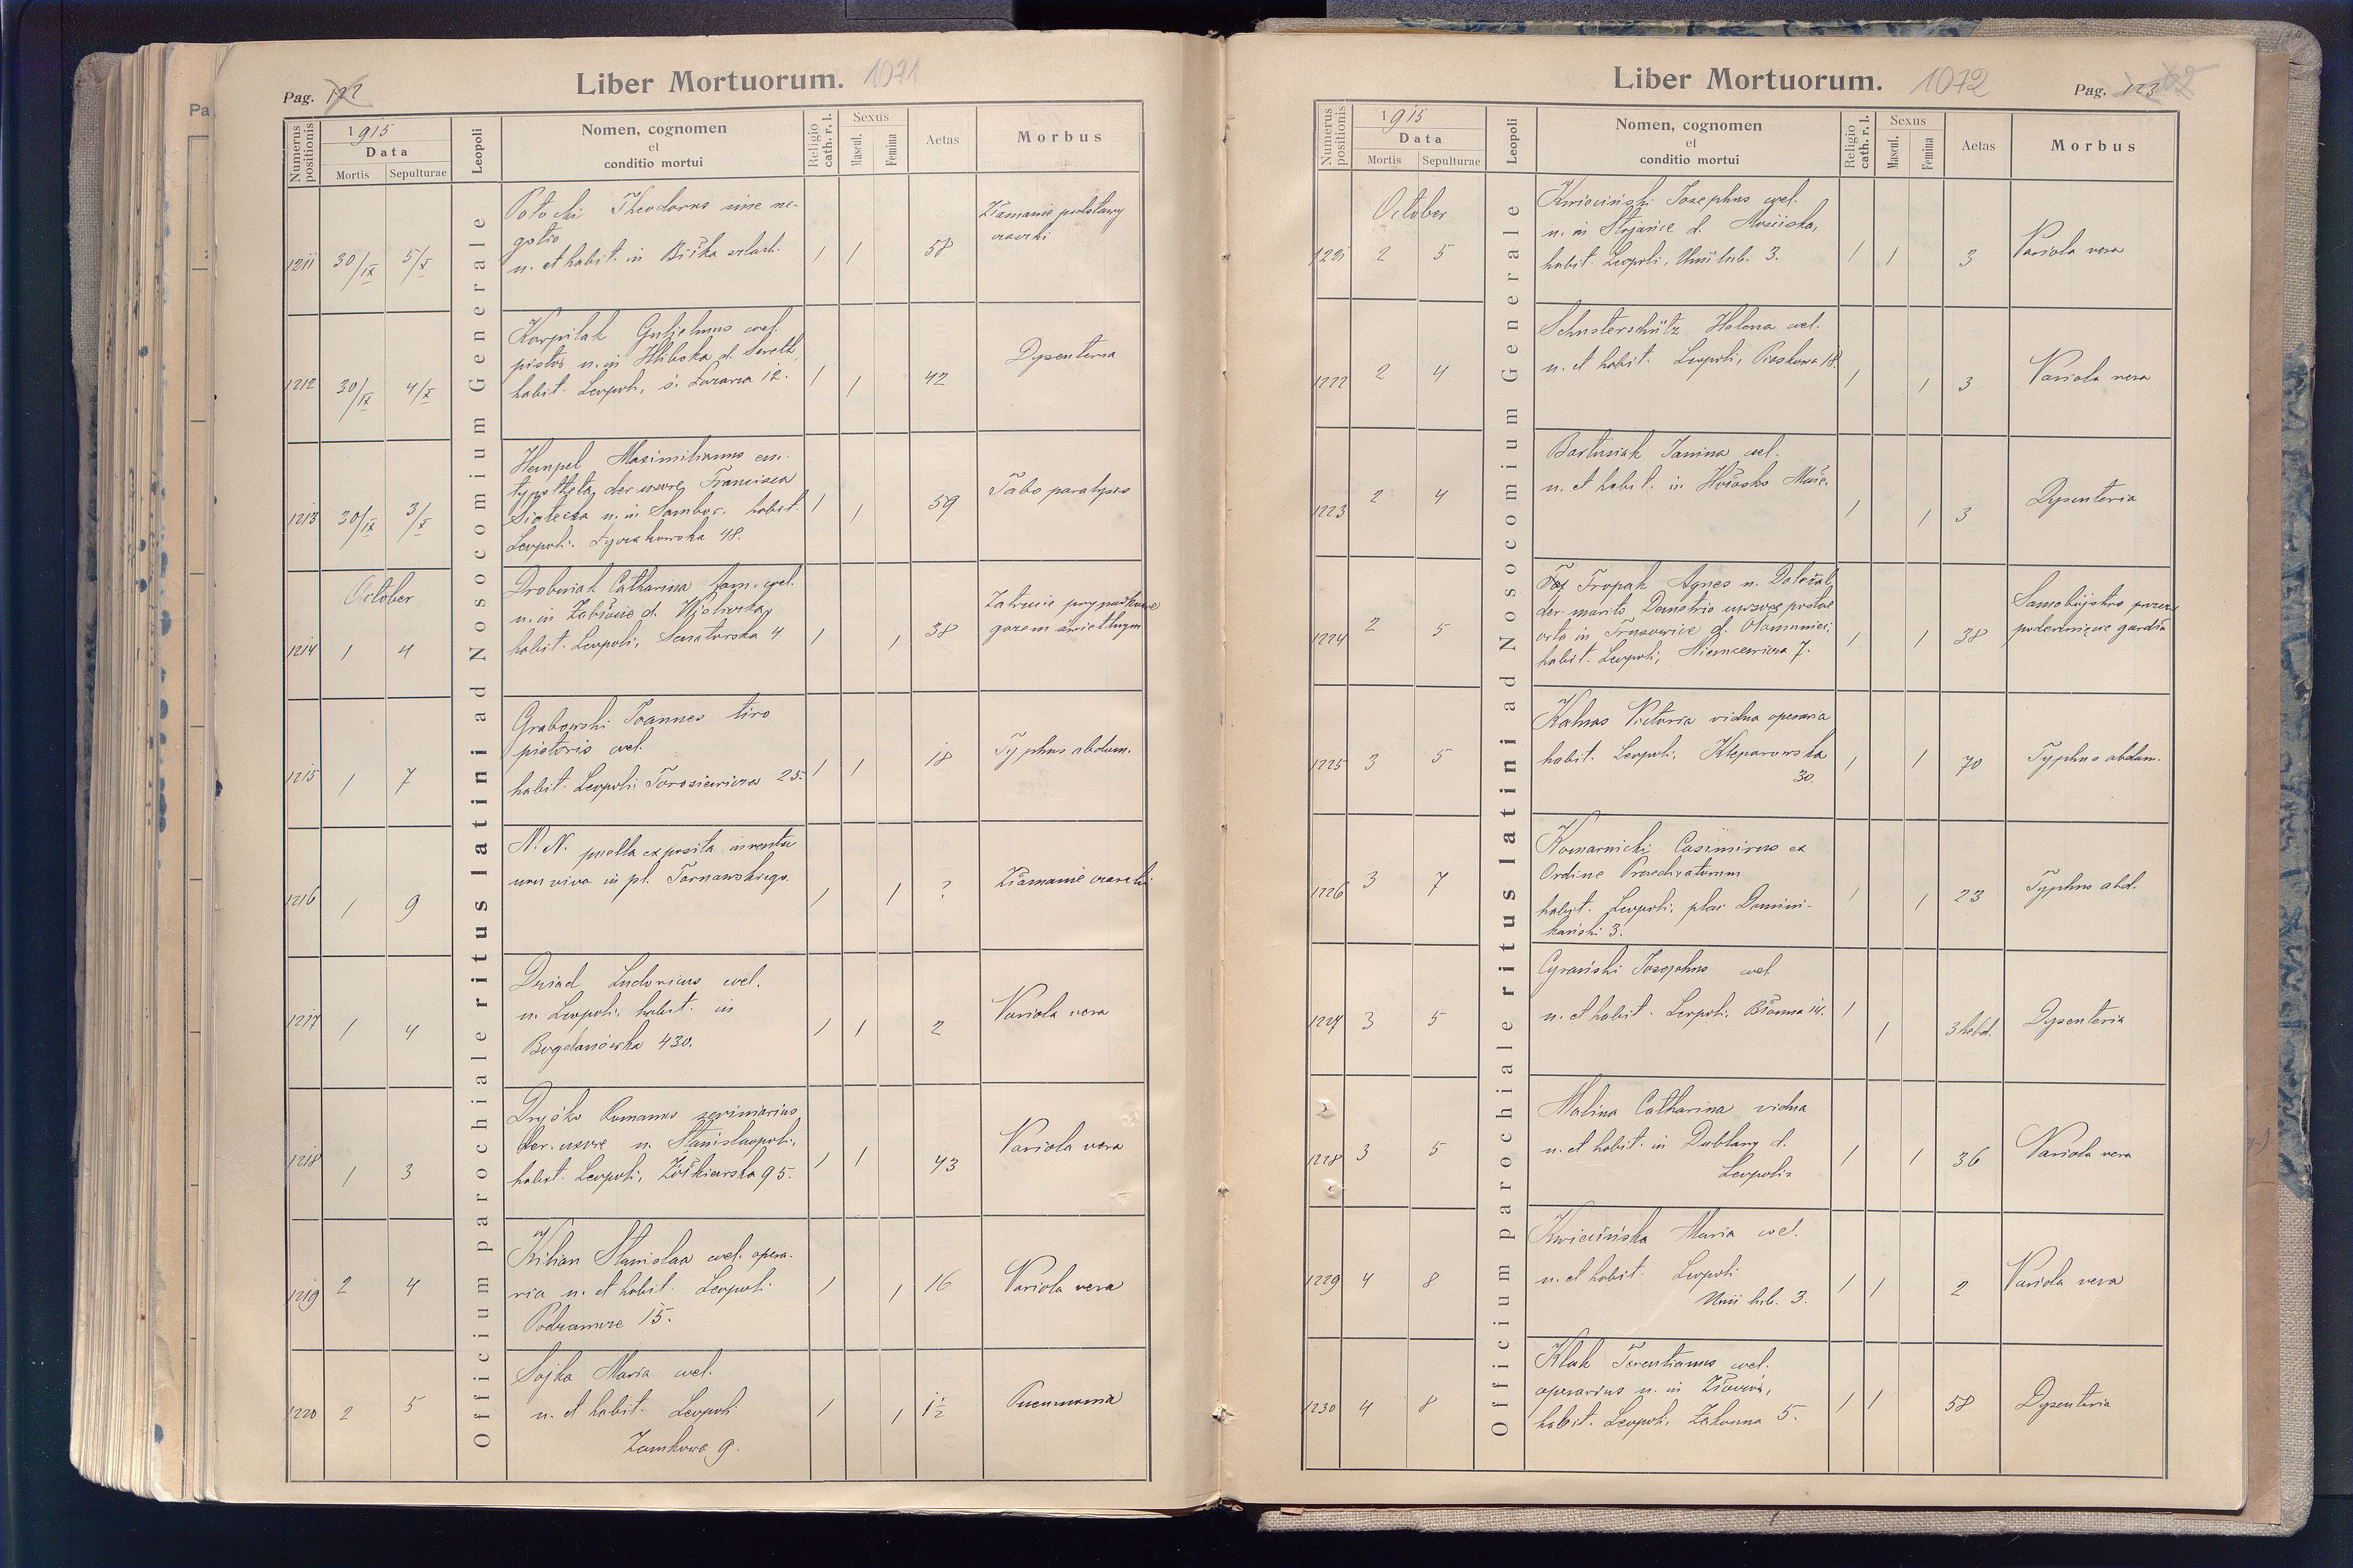 Pag. 122
Liber Mortuorum. 1071
Numerus positionis
1915
Data
Mortis
Sepulturae
Leopoli
Nomen, cognomen
et
conditio mortui
Religio cath. r. l.
Sexus
Mascul.
Femina
Aetas
Morbus
Officium parochiale ritus latini ad Nosocomium Generale
1211 30/IX 5/X
Potocki Theodorus sine ne-
gotio
n. et habit. in Bíłka szlach.
/ / 58
Złamanie podstawy
czaszki
1212 30/IX 4/X
Karpilak Guljelmus coel.
pistor n. in Hliboka d. Sereth,
habit. Leopoli, ś. Łazarza 12.
/ / 42
Dysenteria
1213 30/IX 3/X
Hempel Maximilianus em.
typotheta, der. uxore, Francisca
n. in Sambor. habit.
Leopoli. Łyczakowska 48.
/ / 59
Tabo paralysis
October
1214 1 4
Drobniak Catharina fam. coel.
n. in d.
habit. Leopoli, Senatorska 4
/ / 38
Zatrucie przypadkowe
gazem świetlnym
1215 1 7
Grabowski Joannes tiro
pistoris coel.
habit. Leopoli. Torosiewicza 25.
/ / 18
Typhus abdom.
1216 1 9
N. N. puella exposita inventa
non viva in pl. Tarnawskiego.
/ / ?
Złamanie czaszki
1217 1 4
Dziad Ludovicus coel.
n. Leopoli, habit. in
Bogdanówka 430.
/ / 2
Variola vera
1218 1 3
Dryśko Romanus
der. uxore n. Stanislaopoli,
habit. Leopoli, Żółkiewska 95.
/ / 43
Variola vera
1219 2 4
Kilian Stanislaa coel. opera-
ria n. et habit. Leopoli
Podzamcze 15.
/ / 16
Variola vera
1220 2 5
Sojka Maria coel.
n. et habit. Leopoli
Zamkowa 9.
/ / 1 1/2
Pneumonia
Liber Mortuorum. 1072
Pag. 123 62
Numerus positionis
1915
Data
Mortis
Sepulturae
Leopoli
Nomen, cognomen
et
conditio mortui
Religio cath. r. l.
Sexus
Mascul.
Femina
Aetas
Morbus
Officium parochiale ritus latini ad Nosocomium Generale
October
1221 2 5
Kwieciński Josephus coel.
n. in Stojańce d. Mościska,
habit. Leopoli, Unii lub. 3.
/ / 3
Variola vera
1222 2 4
Schusterschütz Helena coel.
n. et habit. Leopoli, Piaskowa 18.
/ / 3
Variola vera
1223 2 4
Bartusiak Janina coel.
n. et habit. in Hołosko
/ / 3
Dysenteria
1224 2 5
Tropak Agnes n. Doležal
der. marito Demetrio uxore postae
orta in d. Ołomuniec,
habit. Leopoli, Niemcewicza 7.
/ / 38
Samobójstwo przez
poderżnięcie gardła
1225 3 5
Kalnas Victoria vidua operaria
habit. Leopoli, Kleparowska
30.
/ / 70
Typhus abdom.
1226 3 7
Komarnicki Casimirus ex
Ordine Praedicatorum
habit. Leopoli, plac Domini-
kański 3.
/ / 23
Typhus abd.
1227 3 5
Cyrański Josephus coel
n. et habit. Leopoli, Błonna 14.
/ / 3 hebd.
Dysenteria
1228 3 5
Malina Catharina vidua
n. et habit. in Dublany d.
Leopolis
/ / 36
Variola vera
1229 4 8
Kwiecińska Maria coel.
n. et habit. Leopoli
Unii lub. 3.
/ / 2
Variola vera
1230 4 8
Kluk Terentianus coel.
operarius n. in Złoczów,
habit. Leopoli, Zakonna 5.
/ / 58
Dysenteria